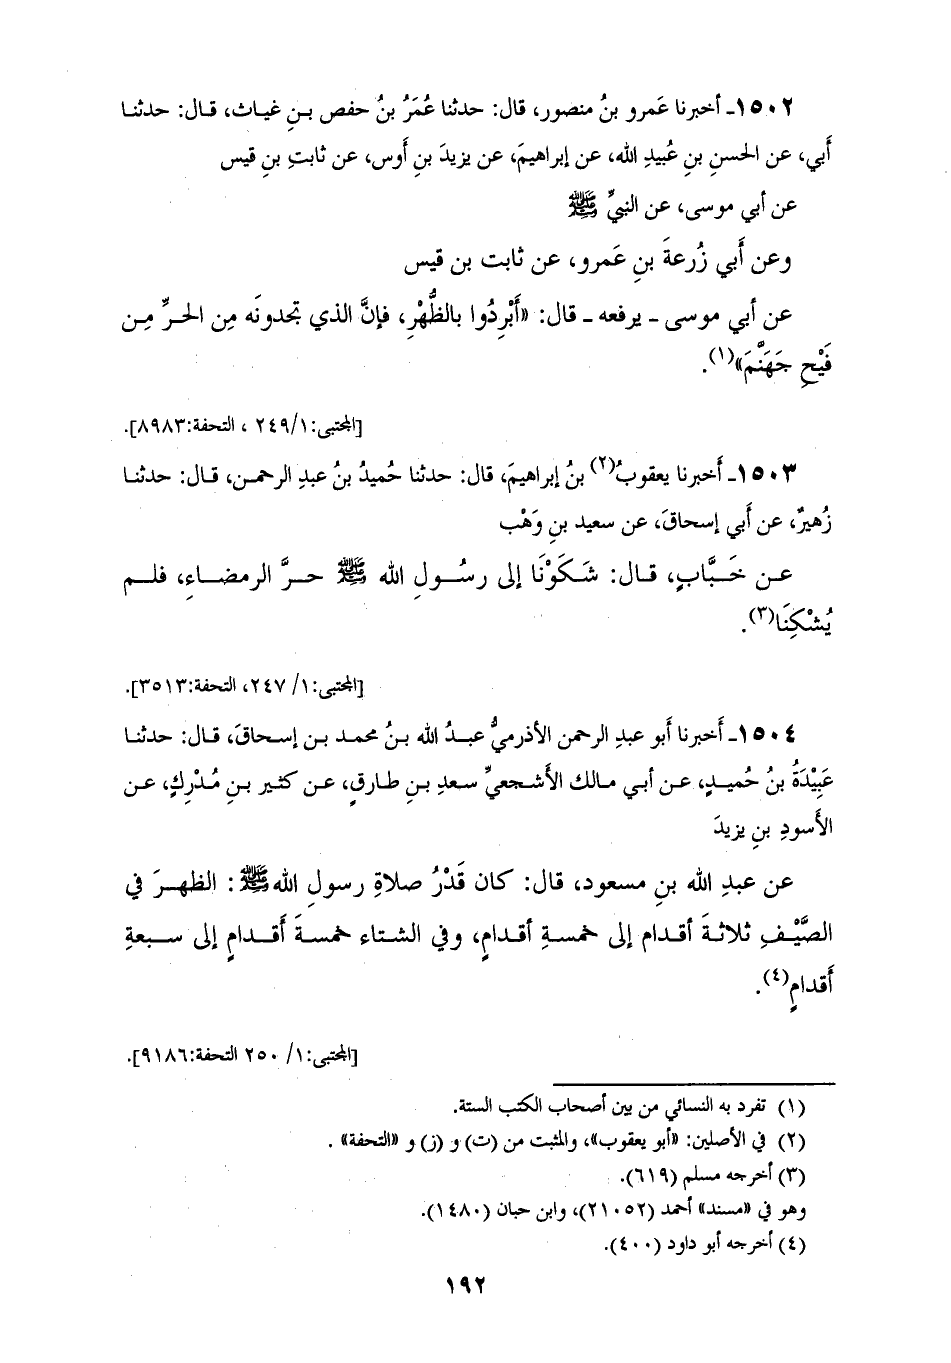 ١٥٠٢ـ أخبرنا عَمرو بنُ منصور، قال: حدثنا عُمَرُ بنُ حفص بـنِ غياث، قـال: حدثنـا
أَبي، عن الحسنِ بنِ عُبيدِ الله، عن إبراهيمَ، عن يزيدَ بنِ أوس، عن ثابتِ بنِ قيس
عن أبي موسى، عن النبيِّ ﷺ
وعن أَبي زُرعةَ بنِ عَمرو، عن ثابت بن قيس
عن أبي موسى ـ يرفعه ـ قال: «أَبْرِدُوا بالظُّهْرِ، فإنَّ الذي تجدونَه مِن الحـرِّ مِـن
فَيْحِ جَهَنَّمَ»(١).
[المجتبى:٢٤٩/١ ، التحفة:٨٩٨٣].
١٥٠٣ـ أَخبرنا يعقوبُ(٢) بنُ إبراهيمَ، قال: حدثنا حُميدُ بنُ عبدِ الرحمـن، قـال: حدثنـا
زُهيرٌ، عن أَبي إسحاقَ، عن سعيد بنِ وَهْب
عـن خَـبَّابٍ، قـال: شَـكَوْنَا إلى رسُـولِ الله ﷺ حـرَّ الرمضـاءِ، فلـم
يُشْكِنَا(٣).
[المجتبى:١/ ٢٤٧، التحفة:٣٥١٣].
١٥٠٤ـ أَخبرنا أَبو عبدِ الرحمن الأذرميُّ عبـدُ الله بـنُ محمـد بـن إسـحاقَ، قـال: حدثنـا
عَبِيْدَةُ بنُ حُميـدٍ، عـن أبـي مـالك الأَشـجعيِّ سـعدِ بـنِ طـارقٍ، عـن كثـير بـنِ مُـدْرِكٍ، عـن
الأَسودِ بنِ يزيدَ
عن عبدِ الله بنِ مسعود، قال: كان قَدْرُ صلاةِ رسولِ الله ﷺ: الظهـرَ في
الصَّيْـفِ ثلاثـةَ أقـدام إلى خمسـةِ أقـدامٍ، وفي الشـتاء خمسـةَ أَقـدامٍ إلى سـبعةِ
أَقدامٍ(٤).
[المجتبى:١/ ٢٥٠ التحفة:٩١٨٦].
(١) تفرد به النسائي من بين أصحاب الكتب الستة.
(٢) في الأصلين: «أبو يعقوب»، والمثبت من (ت) و (ز) و «التحفة» .
(٣) أخرجه مسلم (٦١٩).
وهو في «مسند» أحمد (٢١٠٥٢)، وابن حبان (١٤٨٠).
(٤) أخرجه أبو داود (٤٠٠).
١٩٢